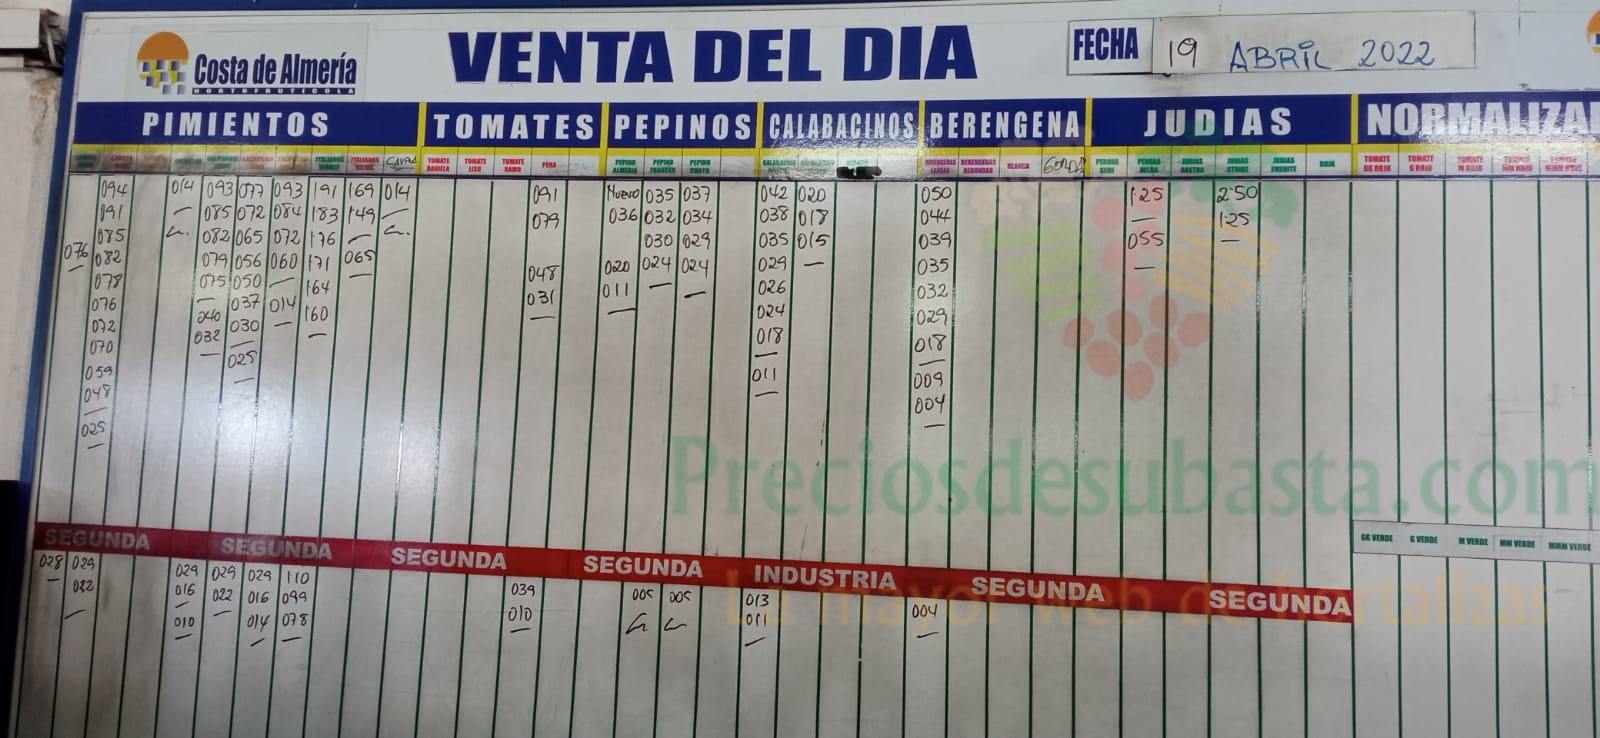 Costa de Almería
HORTOFRUTICOLA
VENTA DEL DIA
FECHA
19 ABRIL 2022
PIMIENTOS TOMATES PEPINOS CALABACINOS BERENGENA JUDIAS NORMALIZA
ITALIANOS ROJOS TOMATE DANIELA TOMATE LISO TOMATE RAMO PERA PEPINO ALMERIA PEPINO FRANCES PEPINO CORTO BERENGENAS LARGAS BERENGENAS REDONDAS BLANCA GORDA PERONA SEMI PERONA NELRA JUDIAS JUDIAS STRIKE JUDIAS EMERITE ROJA TOMATE GG ROJO TOMATE G ROJO TOMATE M ROJO TOMATE MM ROJO TOMATE MMM ROJO
094 014 093 077 093 191 169 014 091 Nuevo 035 037 042 020 050 1'25 2'50
091 085 072 084 183 149 079 036 032 034 038 018 044 1'25
085 082 065 072 176 030 029 035 015 039 055
076 082 079 056 060 171 065 048 020 024 024 029 035
078 075 050 164 031 011 026 032
076 040 037 014 160 024 029
072 032 030 018 018
070 025 011 009
059 004
048
025
Preciosdesubasta.com
SEGUNDA SEGUNDA SEGUNDA SEGUNDA INDUSTRIA SEGUNDA SEGUNDA
GG VERDE G VERDE M VERDE MM VERDE MMM VERDE
La mayor web de hortalizas
028 029 029 029 029 110 039 005 005 013 004
022 016 022 016 099 010 011
010 014 078